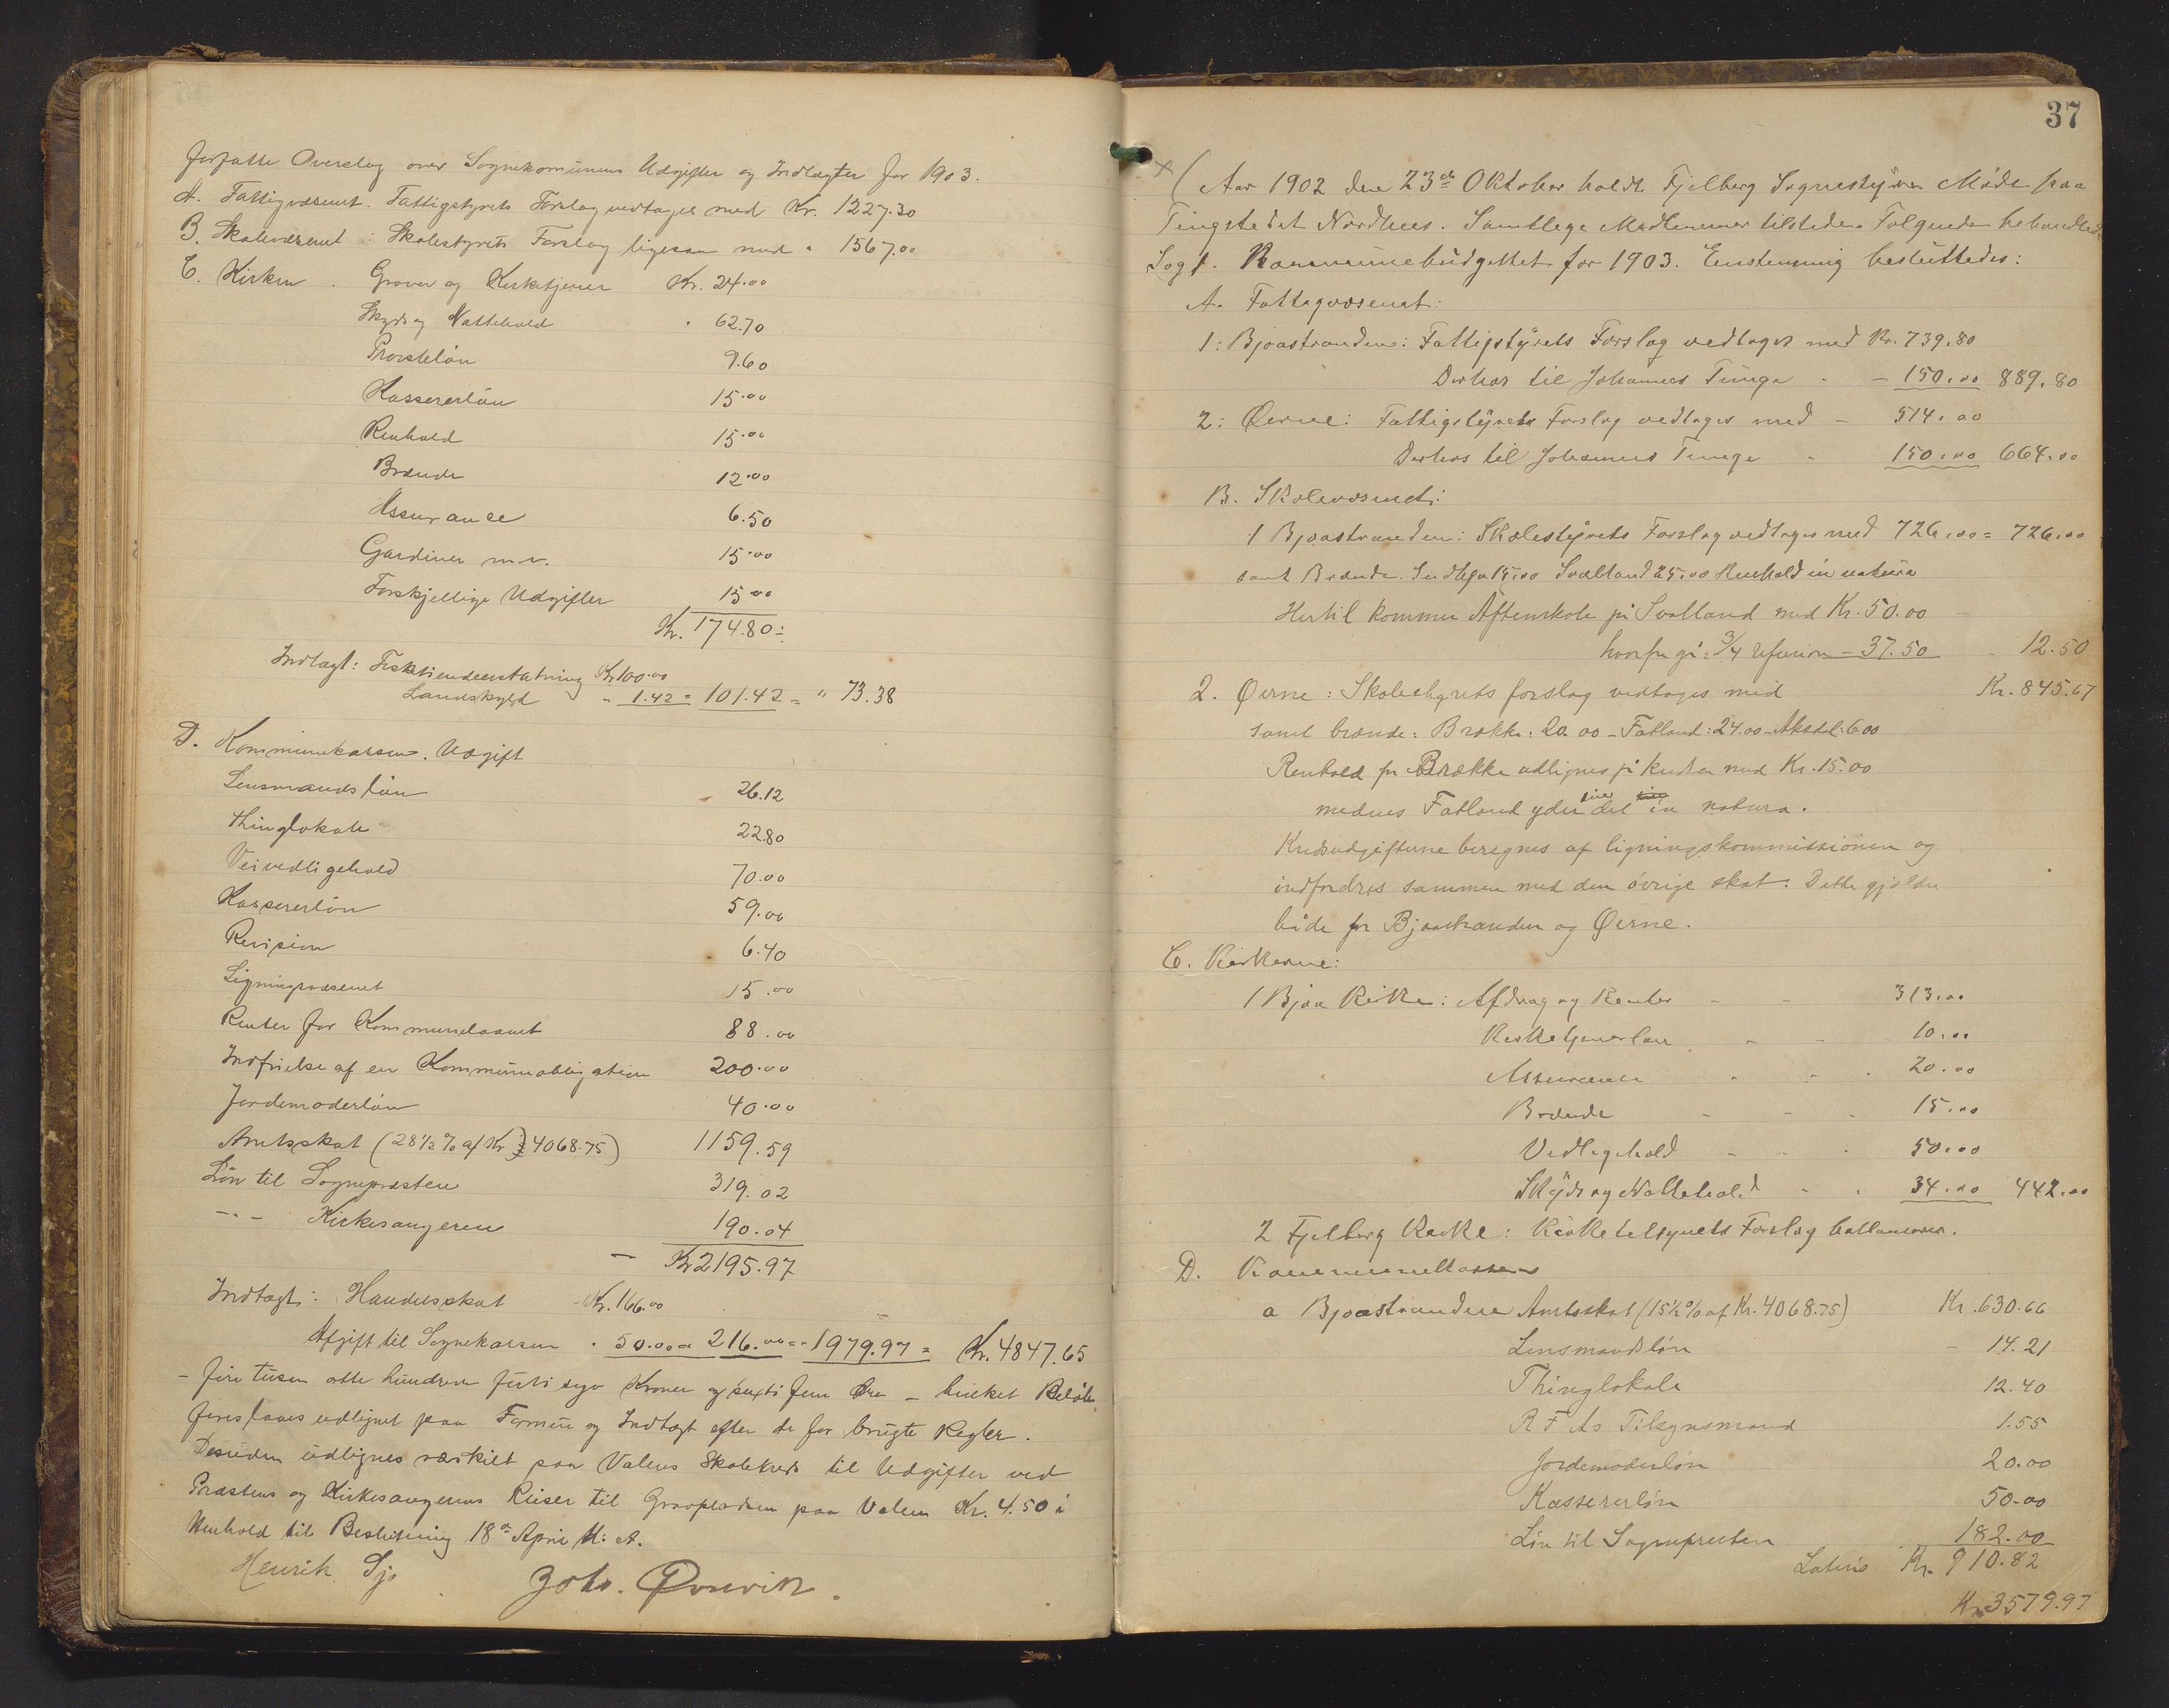 forfatte Overslag over Sognekomunens Udgifter og Indtægter for 1903.
A. Fattigvæsenet. Fattigstyrets Forslag vedtages med Kr. 1227.30
B. Skolevæsenet : Skolestyrets Forslag ligesaa med " 1567.00
C. Kirken . Graver og Kirketjener Kr. 24.00
Skyds og Nattehold " 62.70
Provsteløn 9.60
Kassererløn 15.00
Renhold 15.00
Brænde 12.00
Assurance 6.50
Gardiner m.v. 15.00
Forskjellige Udgifter 15.00
Kr. 174.80
Indtægt: Fisketiendeerstatning Kr 100.00
Landskyld - 1.42 = 101.42 = " 73.38
D. Kommunekassen. Udgift
Lensmandsløn 26.12
Thinglokale 22.80
Veivedligehold 70.00
Kassererløn 59.00
Revision 6.40
Ligningsvæsenet 15.00
Renter for Kommunelaanet 88.00
Indfrielse af en Kommuneobligation 200.00
Jordemoderløn 40.00
Amtsskat (28½ % af Kr 4068.75) 1159.59
Løn til Sognepræsten 319.02
-"- Kirkesangeren 190.04
- Kr 2195.97
Indtægt: Handelsskat Kr. 166.00
Afgift til Sognekassen " 50.00 = 216.00 = 1979.97 = Kr. 4847.65
- fire tusen otte hundrede førti syv Kroner og sexti fem Øre - hvilket Beløb
foreslaaes udlignet paa Formue og Indtægt efter de før brugte Regler.
Desuden udlignes særskilt paa Valens Skolekreds til Udgifter ved
Præstens og Kirkesangerens Reiser til Gravpladsen paa Valen Kr. 4.50 i
Henhold til Beslutning 18de April d: A.
Henrik Sjo Johs. Øvrevik.
37
× ( Aar 1902 den 23de Oktober holdt Fjelberg Sognestyre Møde paa
Tingstedet Nordhus. Samtlege Medlemmer tilstede. Følgende behandledes
Sag 1. Kommunebudgettet for 1903. Enstemmig besluttedes:
A. Fattigvæsenet:
1: Bjoastranden: Fattigstyrets Forslag vedtages med Kr. 739.80
Derhos til Johannes Tunge - - 150.00 889.80
2: Øerne: Fattigstyrets Forslag vedtages med - 514.00
Derhos til Johannes Tunge - 150.00 664.00
B. Skolevæsenet:
1 Bjoastranden: Skolestyrets Forslag vedtages med 726.00 = 726.00
samt Brænde. 15.00 Svolland 25.00 Renhold in natura
Hertil kommer Aftenskole på Svolland med Kr. 50.00
hvorfra går 3/4 refusion - 37.50 - 12.50
2. Øerne: Skolestyrets forslag vedtages med Kr. 845.67
samt brænde: Brække: 20.00 - Fatland: 24.00 - Aksdal: 6.00
Renhold for Brække udlignes på kredsen med Kr. 15.00
medens Fatland yder sin del in natura.
Kredsudgifterne beregnes af ligningskommissionen og
indfordres sammen med den øvrige skat. Dette gjælder
både for Bjoastranden og Øerne.
C. Kirkerne:
1 Bjoa Kirke: Afdrag og Renter - - 313.00
Kirketjenerløn - - 10.00
Assurance - - - 20.00
Brænde - - - 15.00
Vedligehold - - - 50.00
Skyds og Nattehold - - 34.00 442.00
2 Fjelberg Kirke: Kirketilsynets Forslag ballancerer.
D. Kommunekassen
a Bjoastranden Amtsskat (15½ % af Kr. 4068.75) Kr. 630.66
Lensmandsløn - 14.21
Thinglokale 12.40
Tilsynsmand 1.55
Jordemoderløn 20.00
Kassererløn 50.00
Løn til Sognepresten 182.00
Latus Kr. 910.82
Kr. 3579.97